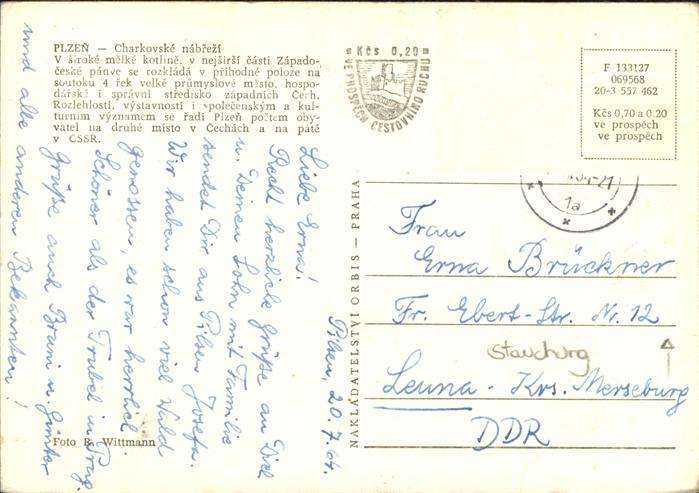 PLZEŇ — Charkovské nábřeží
V široké mělké kotlině, v nejširší části Západo-
české pánve se rozkládá v příhodné poloze na
soutoku 4 řek velké průmyslové město, hospo-
dářské i správní středisko západních Čech.
Rozlehlostí, výstavností i společenským a kul-
turním významem se řadí Plzeň počtem oby-
vatel na druhé místo v Čechách a na páté
v ČSSR.
Foto B. Wittmann
Kčs 0,20
VE PROSPĚCH CESTOVNÍHO RUCHU
F 133127
069568
20-3 557 462
Kčs 0,70 a 0.20
ve prospěch
ve prospěch
-21
1a
NAKLADATELSTVÍ ORBIS — PRAHA
Pilsen, 20.7.64.
Liebe Erna!
Recht herzliche Grüße an Dich
u. Deinen Sohn mit Familie
sendet Dir aus Pilsen Josefa.
Wir haben schon viel Wald
genossen, es war herrlich.
Schöner als der Trubel in Prag.
Grüße auch Brami u. Günter
und alle anderen Bekannten!
Frau
Erna Brückner
Fr. Ebert-Str. Nr. 12
Stauchung
Leuna - Krs. Merseburg
DDR